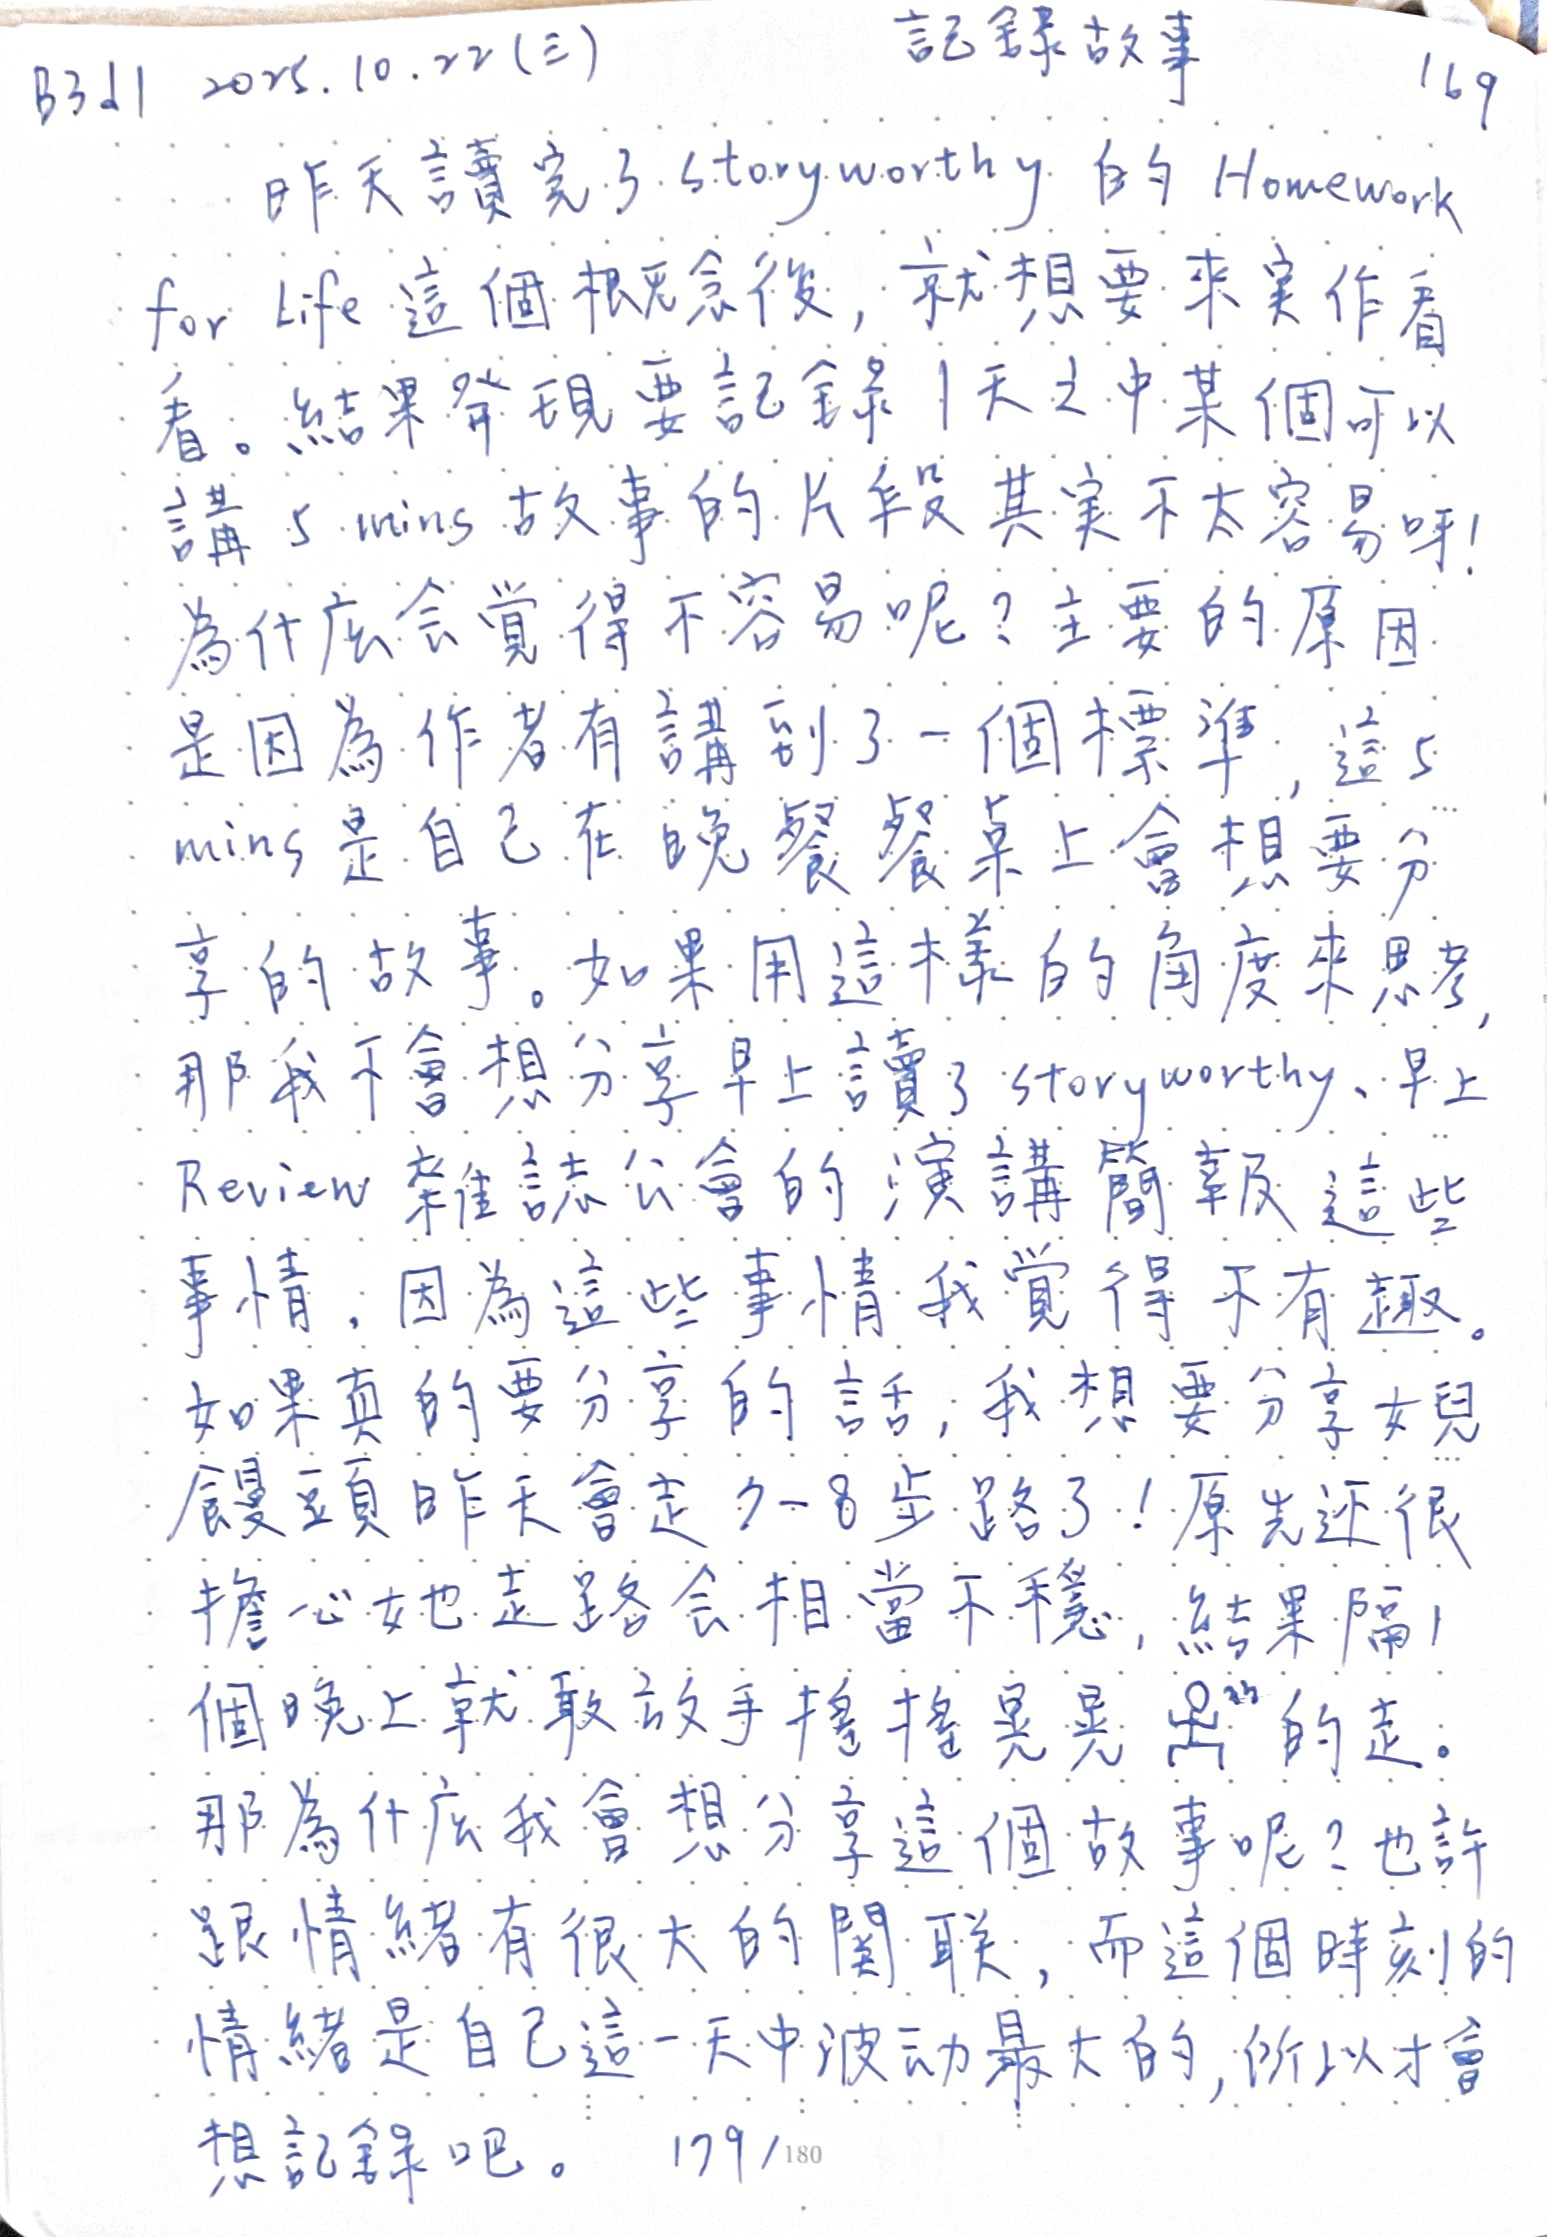 B3d1 2025.10.22(三) 記錄故事 169
昨天讀完了 storyworthy 的 Homework
for Life 這個概念後,就想要來実作看
看。結果発現要記錄1天之中某個可以
講 5 mins 故事的片段其実不太容易呀!
為什庅会覚得不容易呢?主要的原因
是因為作者有講到了一個標準,這5
mins 是自己在晚餐餐桌上會想要分
享的故事。如果用這樣的角度來思考,
那我不會想分享早上讀了 storyworthy、早上
Review 雜誌公會的演講簡報這些
事情,因為這些事情我覚得不有趣。
如果真的要分享的話,我想要分享女兒
饅頭昨天會走7-8步路了!原先还很
擔心她走路会相當不穩,結果隔1
個晚上就敢放手搖搖晃晃的走。
那為什庅我會想分享這個故事呢?也許
跟情緒有很大的関联,而這個時刻的
情緒是自己這一天中波动最大的,所以才會
想記錄吧。 179/180